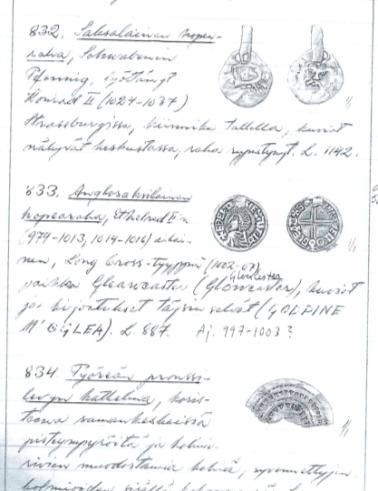 832. Saksalainen hopea-
raha, Schwabenin
Pfennig, lyöttänyt
Konrad II (1024-1037)
Strassburgissa, kiinnike tallella, kuviot
näkyvät keskustassa, raha rypistynyt. L. 1142.
833. Anglosaksilainen
hopearaha, Ethelred II:n
(979-1013, 1014-1016) aikai-
nen, Long Cross-tyyppiä (1002-07)
paikka Gleawecastre (Gloucester), kuviot
ja kirjoitukset täysin selvät (GOLFINE
M'O GLEA). L. 887. Aj. 997-1003?
834 Pyöreän pronssi-
levyn katkelma, koris-
teena samankeskeisiä
pisteympyröitä ja kolmi-
rivisen muodostamia
1/1
1/1
1/1